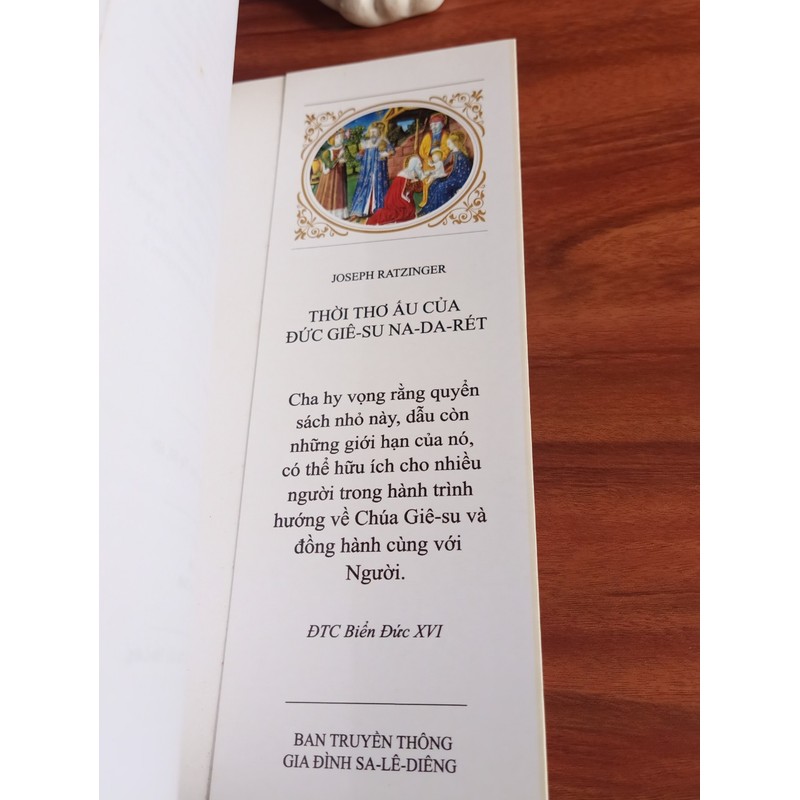 JOSEPH RATZINGER
THỜI THƠ ẤU CỦA
ĐỨC GIÊ-SU NA-DA-RÉT
Cha hy vọng rằng quyển
sách nhỏ này, dẫu còn
những giới hạn của nó,
có thể hữu ích cho nhiều
người trong hành trình
hướng về Chúa Giê-su và
đồng hành cùng với
Người.
ĐTC Biển Đức XVI
BAN TRUYỀN THÔNG
GIA ĐÌNH SA-LÊ-DIÊNG